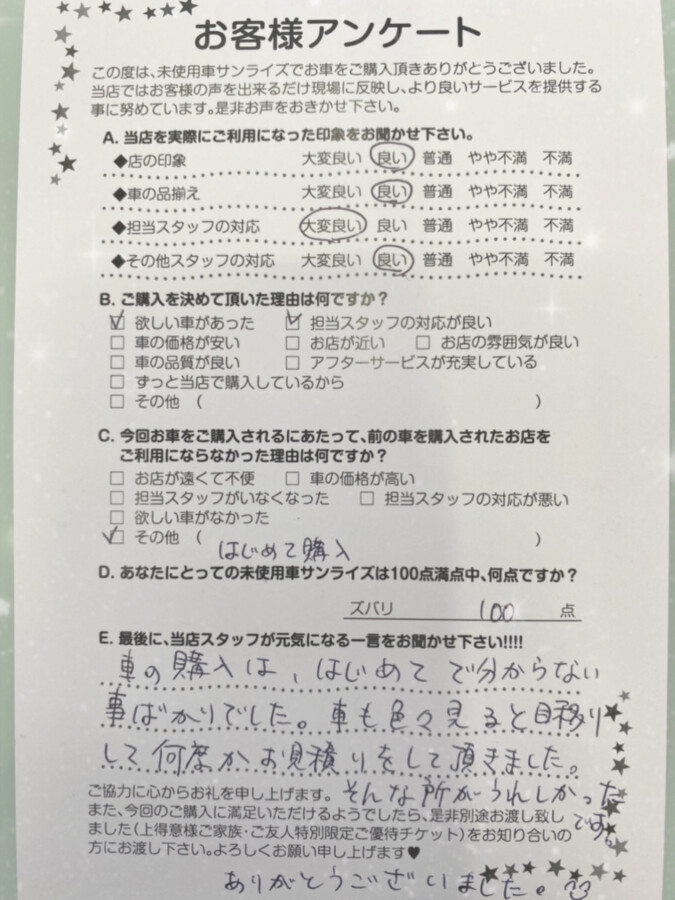 お客様アンケート
この度は、未使用車サンライズでお車をご購入頂きありがとうございました。
当店ではお客様の声を出来るだけ現場に反映し、より良いサービスを提供する
事に努めています。是非お声をおきかせ下さい。
A. 当店を実際にご利用になった印象をお聞かせ下さい。
◆店の印象 大変良い 良い 普通 やや不満 不満
◆車の品揃え 大変良い 良い 普通 やや不満 不満
◆担当スタッフの対応 大変良い 良い 普通 やや不満 不満
◆その他スタッフの対応 大変良い 良い 普通 やや不満 不満
B. ご購入を決めて頂いた理由は何ですか?
☑ 欲しい車があった ☑ 担当スタッフの対応が良い
□ 車の価格が安い □ お店が近い □ お店の雰囲気が良い
□ 車の品質が良い □ アフターサービスが充実している
□ ずっと当店で購入しているから
□ その他 ( )
C. 今回お車をご購入されるにあたって、前の車を購入されたお店を
ご利用にならなかった理由は何ですか?
□ お店が遠くて不便 □ 車の価格が高い
□ 担当スタッフがいなくなった □ 担当スタッフの対応が悪い
□ 欲しい車がなかった
☑ その他 ( )
はじめて購入
D. あなたにとっての未使用車サンライズは100点満点中、何点ですか?
ズバリ 100 点
E. 最後に、当店スタッフが元気になる一言をお聞かせ下さい!!!!
車の購入は、はじめてで分からない
事ばかりでした。車も色々見ると目移り
して何度かお見積りをして頂きました。
そんな所がうれしかった
です。
ご協力に心からお礼を申し上げます。
また、今回のご購入に満足いただけるようでしたら、是非別途お渡し致し
ました(上得意様ご家族・ご友人特別限定ご優待チケット)をお知り合いの
方にお渡し下さい。よろしくお願い申し上げます♥
ありがとうございました。